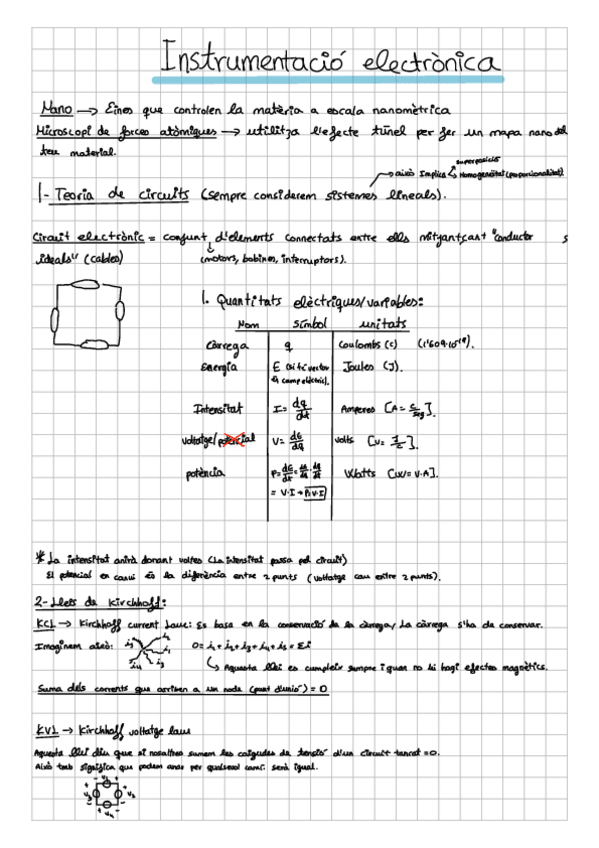 Instrumentació electrònica
Nano → Eines que controlen la matèria a escala nanomètrica
Microscopi de forces atòmiques → utilitza l'efecte túnel per fer un mapa nano del
teu material.
superposició
això implica Homogeneïtat (proporcionalitat).
1- Teoria de circuits (sempre considerem sistemes lineals).
Circuit electrònic = conjunt d'elements connectats entre ells mitjançant "conductor s
ideals" (cables) (motors, bobines, interruptors).
1. Quantitats elèctriques/variables:
Nom símbol unitats
Càrrega q Coulombs (c) (1'609·10⁻¹⁹).
Energia E (si té vector Joules (J).
és camp elèctric).
Intensitat I = dq/dt Amperes [A = C/seg].
voltatge/potencial V = dE/dq volts [V = J/C].
potència P = dE/dt = dE/dq · dq/dt Watts [W = V·A].
= V·I → P=V·I
* La intensitat anirà donant voltes (La intensitat passa pel circuit)
El potencial en canvi és la diferència entre 2 punts (voltatge cau entre 2 punts).
2- Lleis de Kirchhoff:
KCL → Kirchhoff current Law: Es basa en la conservació de la càrrega/ La càrrega s'ha de conservar.
Imaginem això: i₁ i₂ i₃ i₄ i₅ 0 = i₁ + i₂ + i₃ + i₄ + i₅ = Σi
↳ Aquesta llei es compleix sempre i quan no hi hagi efectes magnètics.
Suma dels corrents que arriben a un node (punt d'unió) = 0
KVL → Kirchhoff voltatge law
Aquesta llei diu que si nosaltres sumem les caigudes de tensió d'un circuit tancat = 0.
Això tmb significa que podem anar per qualsevol camí: serà igual.